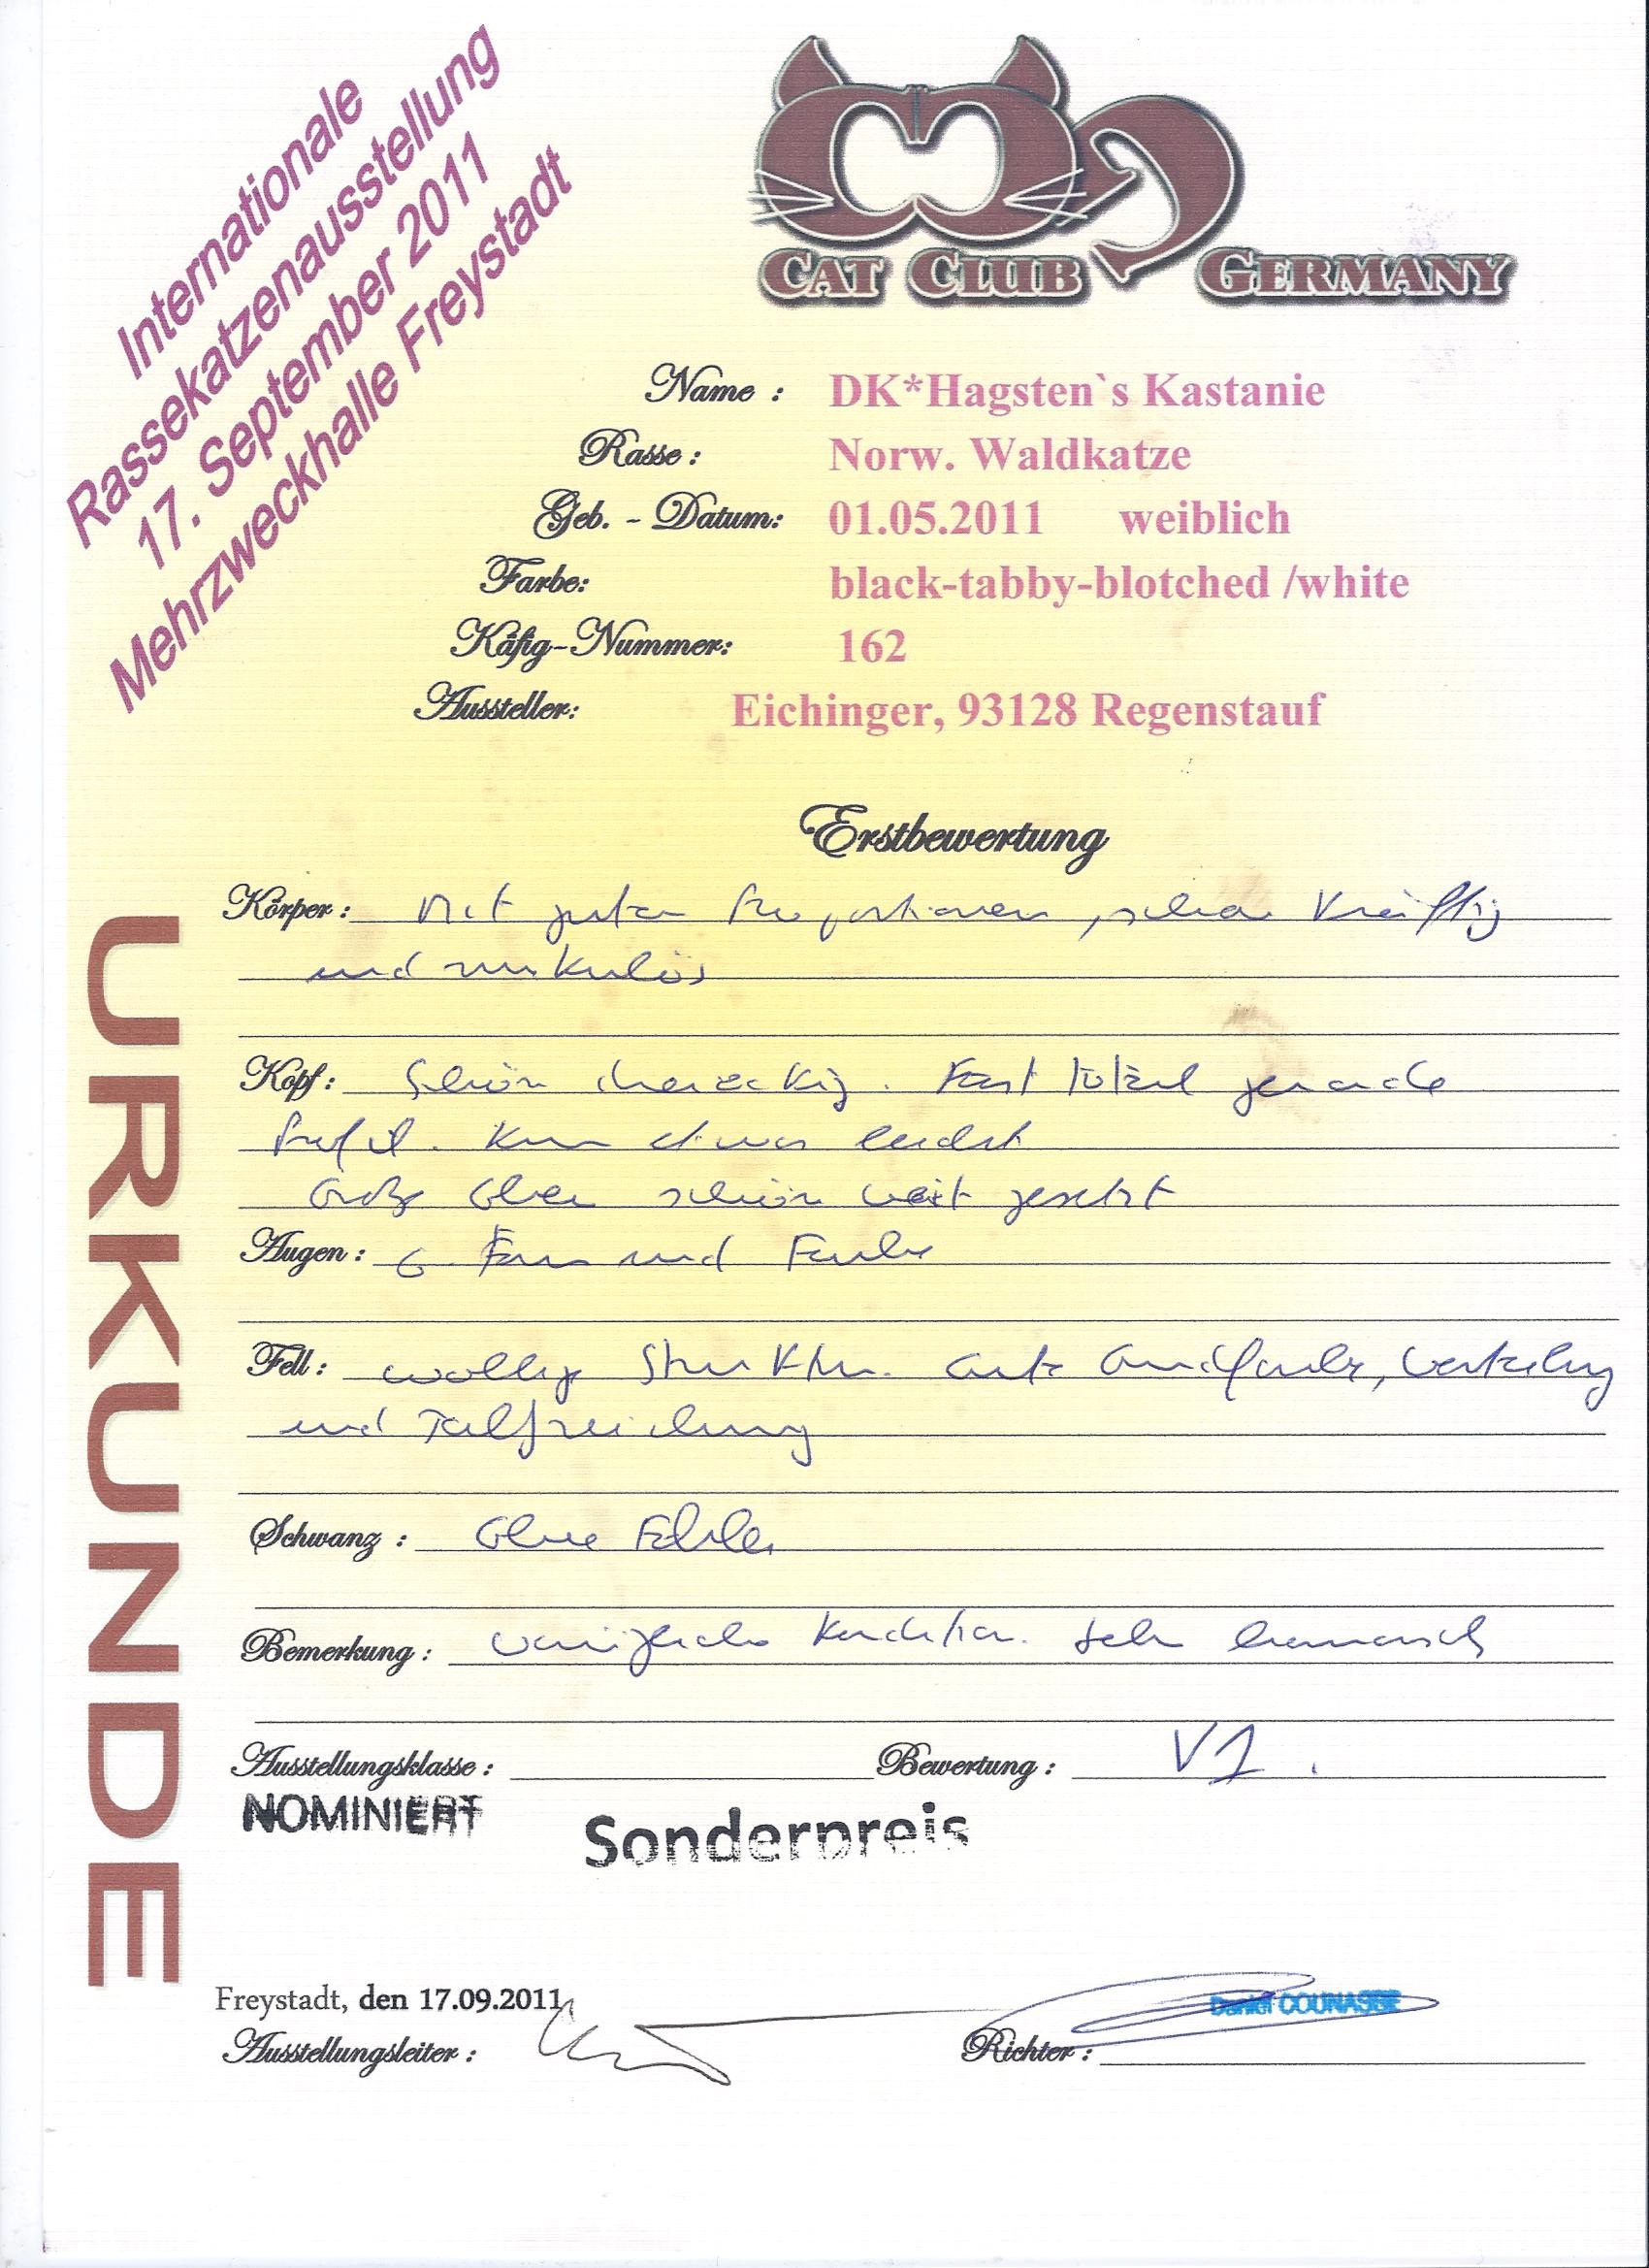 Internationale
Rassekatzenausstellung
17. September 2011
Mehrzweckhalle Freystadt
CAT CLUB GERMANY
Name : DK*Hagsten`s Kastanie
Rasse : Norw. Waldkatze
Geb. - Datum: 01.05.2011 weiblich
Farbe: black-tabby-blotched /white
Käfig-Nummer: 162
Aussteller: Eichinger, 93128 Regenstauf
URKUNDE
Erstbewertung
Körper : Mit guten Proportionen, schon Kräftig
und muskulös
Kopf : Schön dreieckig. Fast total gerade
Profil. Kinn etwas leicht
Große Ohren schön weit gesetzt
Augen : G. Form und Farbe
Fell : wollige Struktur. Gute Grundfarbe, Verteilung
und Tabbyzeichnung
Schwanz : Ohne Fehler
Bemerkung : Vorzügliche Kondition. Sehr harmonisch
Ausstellungsklasse : Bewertung : V1.
NOMINIERT Sonderpreis
Freystadt, den 17.09.2011
Daniel COUNASSE
Ausstellungsleiter : Richter :